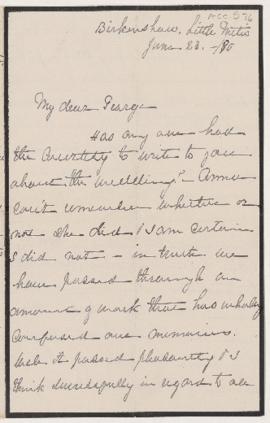 Acc. 576
Birkenshaw, Little Metis
June 23. -/80
My dear George
Has any one had
the to write to you
about the wedding? Anna
can't remember whether or
not she did & I am certain
I did not - in truth we
have passed through an
amount of work that has wholly
confused our memories.
Well it passed pleasantly & I
think successfully in regard to all